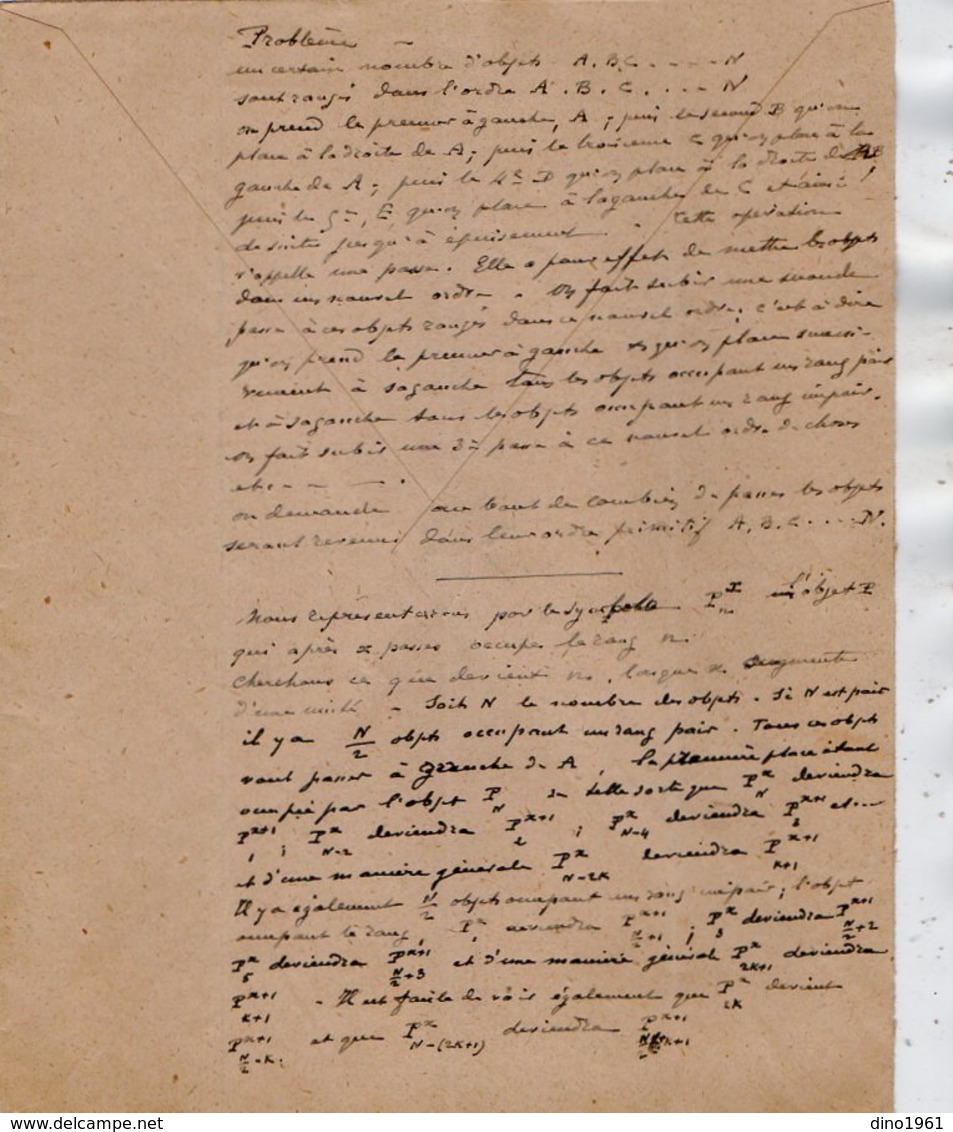 Problème —
un certain nombre d'objets A. B. C. - - - N
sont rangés dans l'ordre A. B. C. ... N
on prend le premier à gauche, A ; puis le second B qu'on
place à la droite de A ; puis le troisième C qu'on place à la
gauche de A ; puis le 4e D qu'on place à la droite de B
puis le 5e, E qu'on place à la gauche de C et ainsi
de suite jusqu'à épuisement. Cette opération
s'appelle une passe. Elle a pour effet de mettre les objets
dans un nouvel ordre. On fait subir une seconde
passe à ces objets rangés dans ce nouvel ordre, c'est à dire
qu'on prend le premier à gauche et qu'on place successi-
vement à sa gauche tous les objets occupant un rang pair
et à sa gauche tous les objets occupant un rang impair.
On fait subir une 3e passe à ce nouvel ordre de choses
etc - - — .
on demande au bout de combien de passes les objets
seront revenus dans leur ordre primitif A, B. C. ... N.
Nous représenterons par le symbole P^x_n l'objet P
qui après x passes occupe le rang n.
Cherchons ce que devient n, lorsque x augmente
d'une unité — Soit N le nombre des objets. Si N est pair
il y a N/2 objets occupant un rang pair. Tous ces objets
vont passer à gauche de A, la première place étant
occupée par l'objet P_N de telle sorte que P^x_N deviendra
P^x+1_1 ; P^x_N-2 deviendra P^x+1_2 ; P^x_N-4 deviendra P^x+1_3 etc...
et d'une manière générale P^x_N-2K deviendra P^x+1_K+1
Il y a également N/2 objets occupant un rang impair ; l'objet
occupant le rang 1, P^x_1 deviendra P^x+1_N/2+1 ; P^x_3 deviendra P^x+1_N/2+2
P^x_5 deviendra P^x+1_N/2+3 et d'une manière générale P^x_2K+1 deviendra
P^x+1_K+1 - Il est facile de voir également que P^x_2K devient
P^x+1_N/2-K. et que P^x_N-(2K+1) deviendra P^x+1